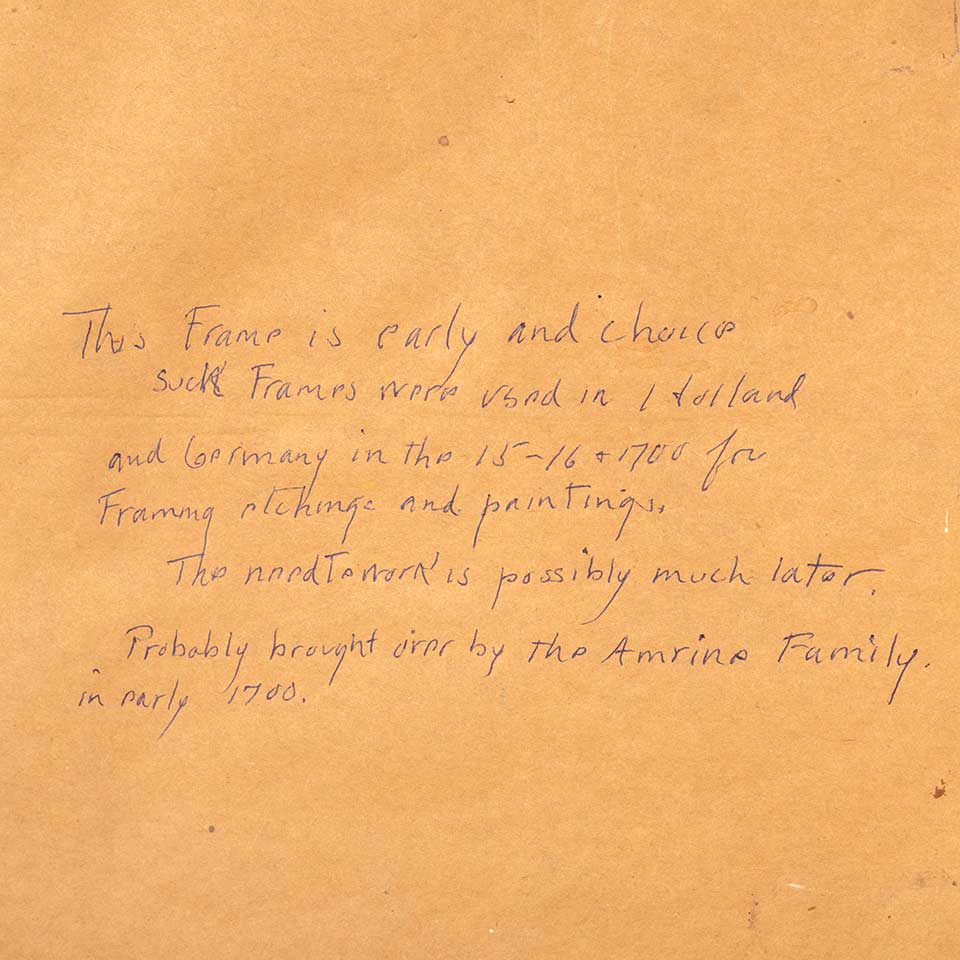 This Frame is early and choice
such Frames were used in Holland
and Germany in the 15-16 + 1700 for
Framing etchings and paintings.
The needlework is possibly much later.
Probably brought over by the Amrine Family.
in early 1700.